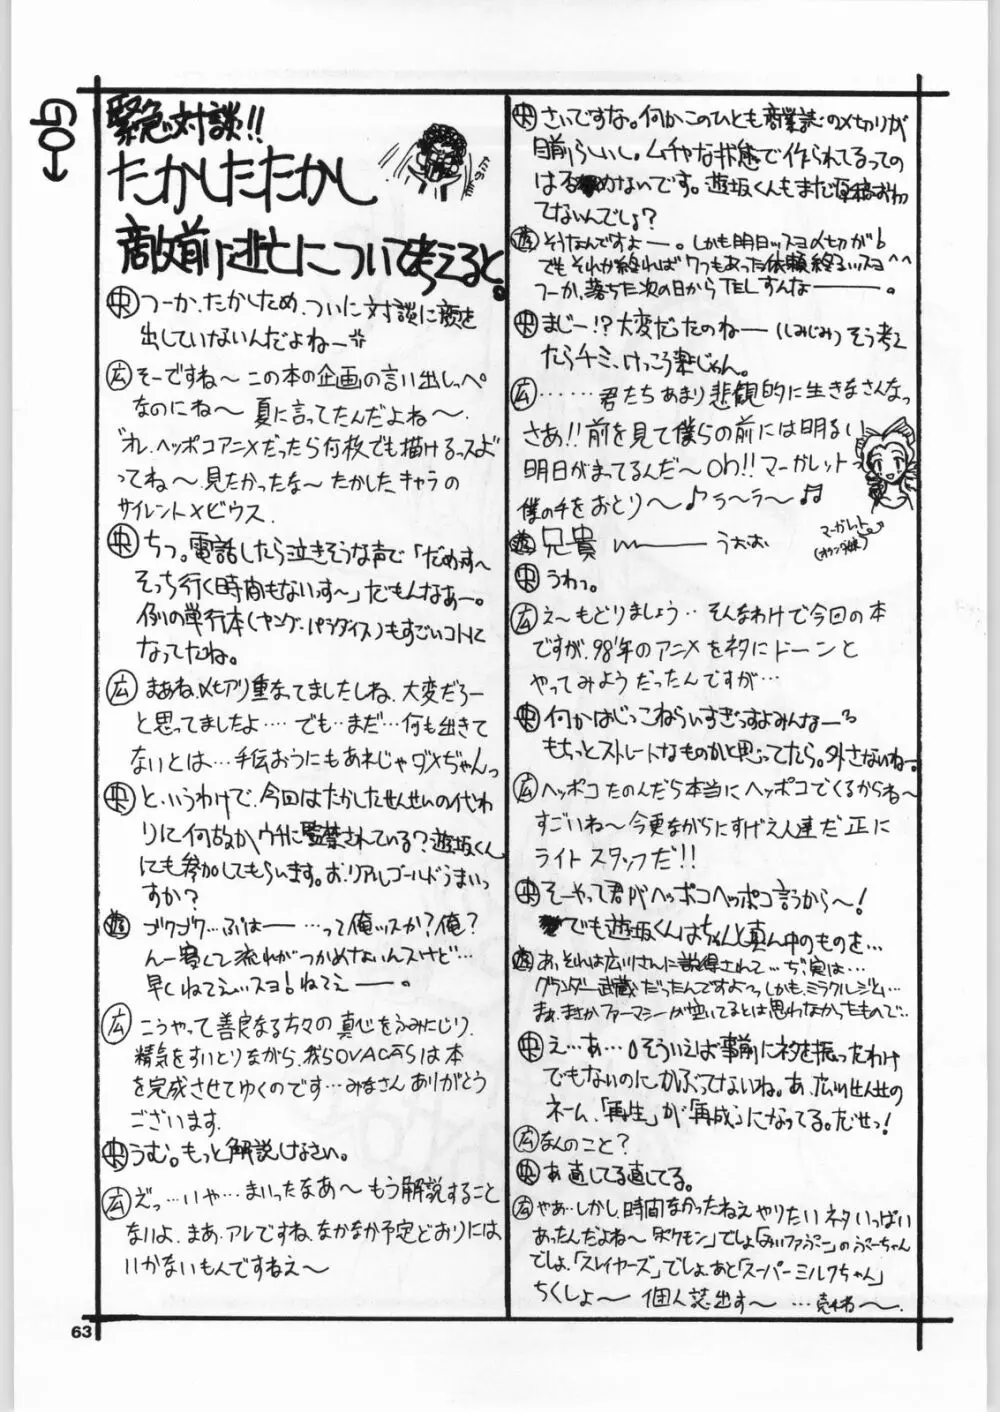 GO→
緊急対談!!
たかしたたかし
敵前逃亡について考えると。
央 つーか、たかしため、ついに対談に顔を
出していないんだよねー
広 そーですね〜 この本の企画の言い出しっぺ
なのにね〜 夏に言ってたんだよね〜.
"オレ、ヘッポコアニメだったら何枚でも描けるっスよ"
ってね〜.見たかったな〜 たかしたキャラの
サイレントメビウス.
央 ちっ。電話したら泣きそうな声で「だめっす〜
そっち行く時間もないっす〜」だもんなぁー。
例の単行本(ヤング・パラダイス)もすごいコトに
なってたね。
広 まあね、〆切り重なってましたしね、大変だろー
と思ってましたよ‥‥ でも‥まだ…何も出きて
ないとは…手伝おうにもあれじゃダメぢゃんっ
央 と、いうわけで、今回はたかしたせんせいの代わ
りに何故かウチに監禁されている?遊坂くん
にも参加してもらいます。お、リアルゴールドうまいっ
すか?
遊 ゴクゴク…ぷはー …って俺ッスか?俺?
んー寒くて流れがつかめないんスけど…
早くねてえッスヨ!ねてえー。
広 こうやって善良なる方々の真心をふみにじり、
精気をすいとりながら、我らOVACASは本
を完成させてゆくのです…みなさんありがとう
ございます.
央 うむ。もっと解説しなさい。
広 えっ…いや…まいったなあ〜もう解説すること
ないよ、まあ、アレですね、なかなか予定どおりには
いかないもんですねえ〜
63
央 さいですな。何かこのひとも商業誌の〆切りが
目前らしいし。ムチャな状態で作られてるっての
は否めないです。遊坂くんもまだ原稿おわっ
てないんでしょ?
遊 そうなんですよー。しかも明日ッスヨ〆切が
でもそれが終れば7つもあった依頼終るッスヨ^^
フーか、落ちた次の日からTELすんなー。
央 まじー!?大変だったのねー(しみじみ)そう考え
たらチミ、けっこう楽じゃん。
広 ‥‥‥君たちあまり悲観的に生きなさんなっ
さあ!!前を見て僕らの前には明るい
明日がまってるんだ〜oh!!マーガレットっ
僕の手をおとり〜♪ラ〜ラ〜♫
マーガレット
(オランダ妹)
遊 兄貴ィー うおお
央 うわっ。
広 え〜もどりましょう‥そんなわけで今回の本
ですが、98'年のアニメをネタにドーンと
やってみようだったんですが…
央 何かはじっこねらいすぎっすよみんなー
もちっとストレートなものかと思ってたら。外さないねー。
広 ヘッポコたのんだら本当にヘッポコでくるからね〜
すごいね〜今更ながらにすげえ人達だ正に
ライトスタッフだ!!
央 そーやって君がヘッポコヘッポコ言うから〜!
でも遊坂くんはちゃんと真ん中のものを…
遊 あ、それは広川さんに説得されて…ぢ、実は…
グランダー武蔵だったんですよ〜っしかもミラクルジム…
まぁ、まさかファーマシーが空いてるとは思わなかったもので…
央 え…あ…そういえば事前にネタを振ったわけ
でもないのに、かぶってないね。あ、広川せんせの
ネーム、「再生」が「再成」になってる。だせっ!
広 なんのこと?
央 あ直してる直してる。
広 やあ…しかし、時間なかったねえやりたいネタいっぱい
あったんだよね〜「ポケモン」でしょ「みいファぷー」のぷーちゃん
でしょ、「スレイヤーズ」でしょ、あと「スーパーミルクちゃん」
ちくしょ〜 個人誌出す〜 …売れね〜.